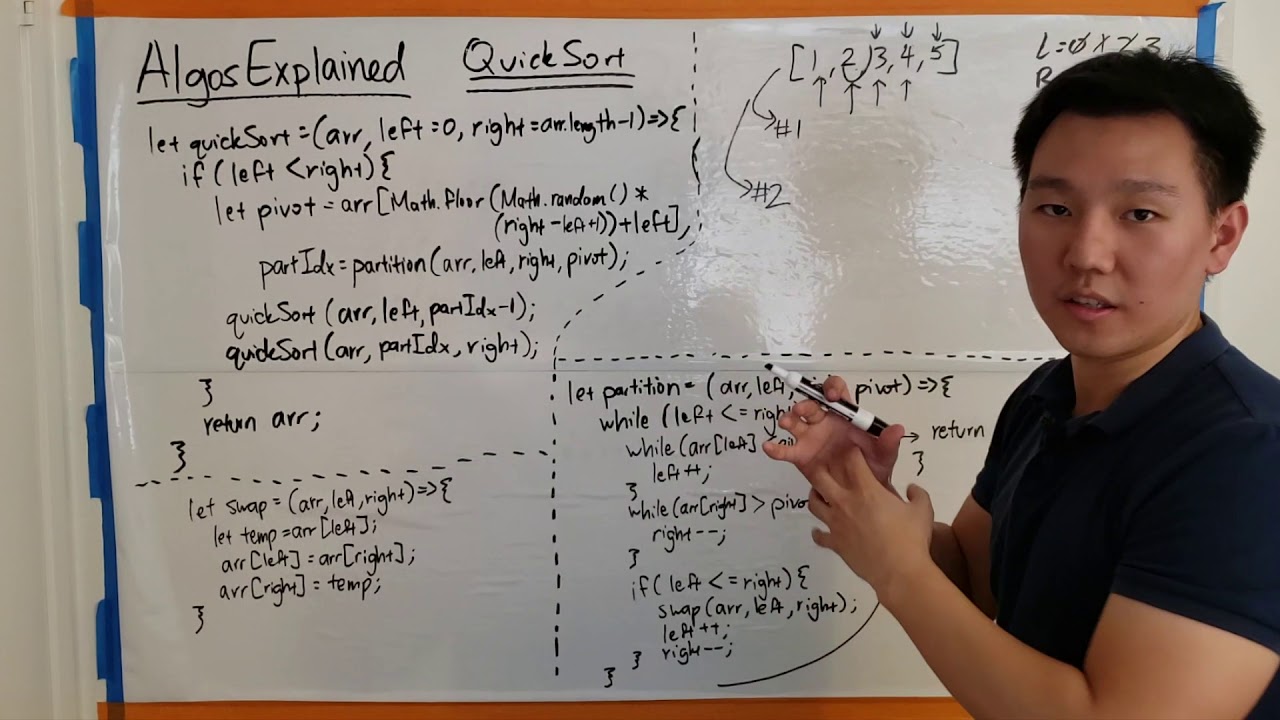 AlgosExplained QuickSort
let quickSort=(arr, left=0, right=arr.length-1)=>{
if (left <right){
let pivot=arr[Math.floor(Math.random()*
(right-left+1))+left],
partIdx=partition(arr,left,right,pivot);
quickSort(arr,left,partIdx-1);
quickSort(arr,partIdx,right);
}
return arr;
}
let swap=(arr,left,right)=>{
let temp=arr[left];
arr[left]=arr[right];
arr[right]=temp;
}
[1,2,3,4,5]
#1
#2
L=0 1 2 3
R
let partition=(arr,left, pivot)=>{
while (left<=righ
while(arr[left]
left++;
}
while(arr[right]>pivo
right--;
}
if(left<=right){
swap(arr,left,right);
left++;
right--;
}
}
return
}